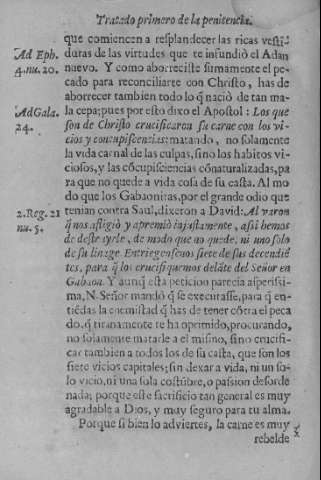 Tratado primero de la penitencia.
que comiencen a resplandecer las ricas vesti-
Ad Eph. duras de las virtudes que te infundió el Adan
4. nu. 20. nuevo. Y como aborreciste sumamente el pe-
cado para reconciliarte con Christo, has de
aborrecer tambien todo lo q̃ nació de tan ma-
Ad Gala. la cepa; pues por esto dixo el Apostol: Los que
24. son de Christo crucificaron su carne con los vi-
cios y concupiscencias: matando, no solamente
la vida carnal de las culpas, sino los habitos vi-
ciosos, y las cõcupisciencias cõnaturalizadas, pa
ra que no quede a vida cosa de su casta. Al mo
do que los Gabaonitas, por el grande odio que
2. Reg. 21 tenian contra Saul, dixeron a David: Al varon
nu. 5. q̃ nos afligió y apremió injustamente, assi hemos
de destruyrle, de modo que no quede, ni uno solo
de su linage. Entriegensenos siete de sus decendiẽ
tes, para q̃ los crucifiquemos delãte del Señor en
Gabaon. Y aunq̃ esta peticion parecia asperissi-
ma, N. Señor mandó q̃ se executasse, para q̃ en
tiẽdas la enemistad q̃ has de tener cõtra el peca
do, q̃ tiranamente te ha oprimido, procurando,
no solamente matarle a el mismo, sino crucifi-
car tambien a todos los de su casta, que son los
siete vicios capitales; sin dexar a vida, ni un so-
lo vicio, ni una sola costũbre, o passion desorde
nada; porque este sacrificio tan general es muy
agradable a Dios, y muy seguro para tu alma.
Porque si bien lo adviertes, la carne es muy
rebelde